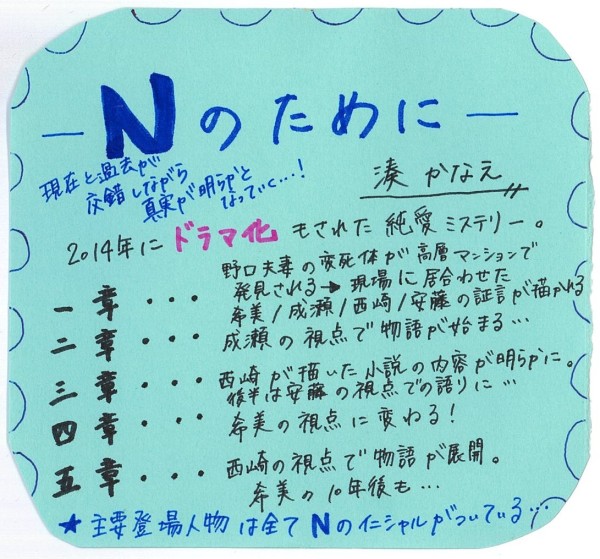 －Nのために－
現在と過去が
交錯しながら
真実が明らかと
なっていく…!
湊かなえ
2014年にドラマ化もされた純愛ミステリー。
一章・・・野口夫妻の変死体が高層マンションで
発見される→現場に居合わせた
希美/成瀬/西崎/安藤の証言が描かれる
二章・・・成瀬の視点で物語が始まる…
三章・・・西崎が描いた小説の内容が明らかに。
後半は安藤の視点での語りに…
四章・・・希美の視点に変わる!
五章・・・西崎の視点で物語が展開。
希美の10年後も…
★主要登場人物は全てNのイニシャルがついている…